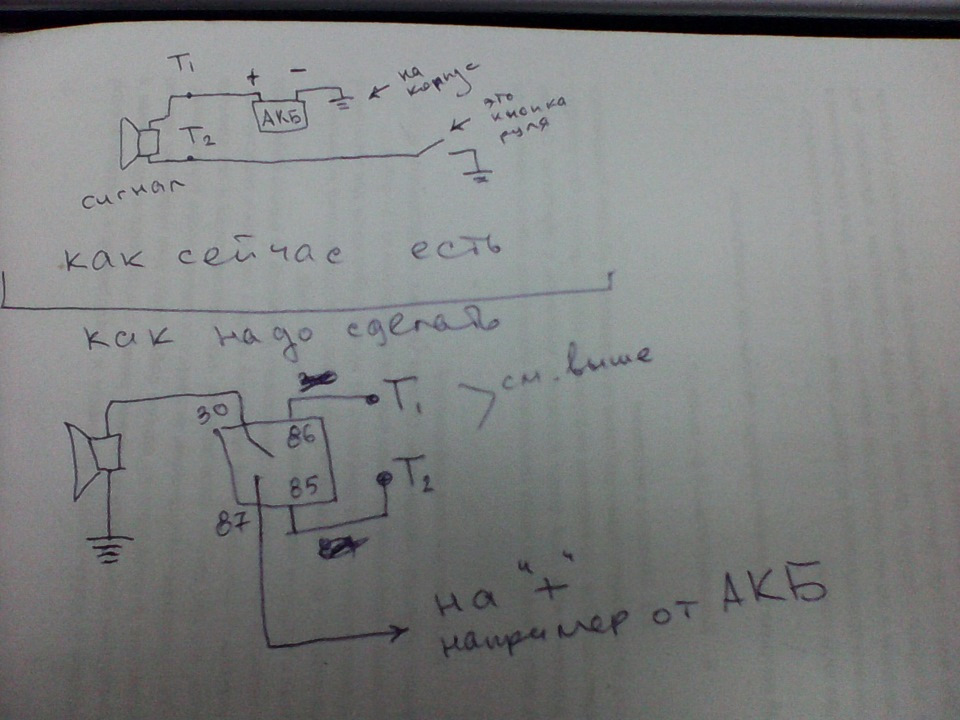 T1 + −
на
корпус
АКБ
это
кнопка
руля
T2
сигнал
как сейчас есть
как надо сделать
см. выше
30
86
T1
85
T2
87
на "+"
например от АКБ